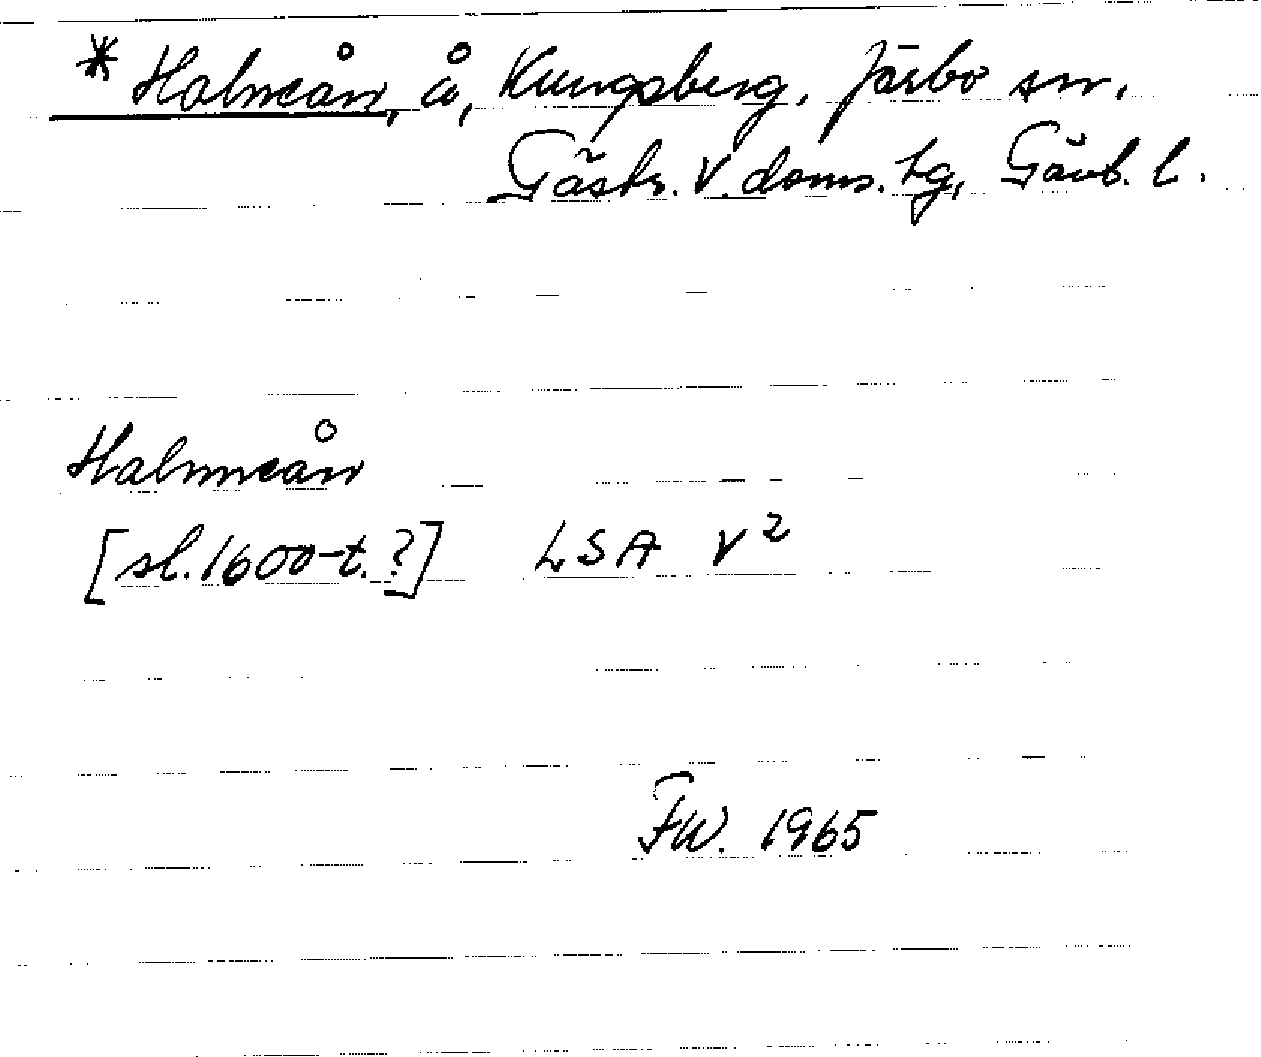 * Halmeån, å, Kungsberg, Järbo sn,
Gästr. V. doms. tg, Gävb. l.
Halmmeån
[sl. 1600-t.?] LSA V²
FW. 1965